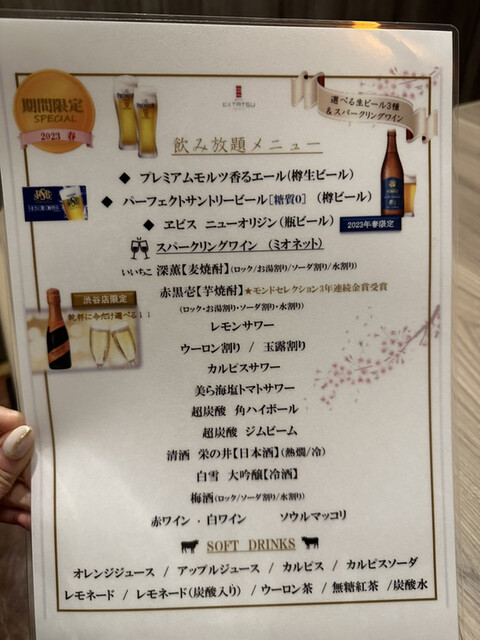 期間限定
SPECIAL
2023 春
選べる生ビール3種
&スパークリングワイン
飲み放題メニュー
◆ プレミアムモルツ香るエール(樽生ビール)
◆ パーフェクトサントリービール[糖質0] (樽ビール)
◆ ヱビス ニューオリジン(瓶ビール)
2023年春限定
スパークリングワイン (ミオネット)
いいちこ 深薫【麦焼酎】(ロック/お湯割り/ソーダ割り/水割り)
渋谷店限定
乾杯に今だけ選べる!!
赤黒壱【芋焼酎】★モンドセレクション3年連続金賞受賞
(ロック・お湯割り・ソーダ割り・水割り)
レモンサワー
ウーロン割り / 玉露割り
カルピスサワー
美ら海塩トマトサワー
超炭酸 角ハイボール
超炭酸 ジムビーム
清酒 栄の井【日本酒】(熱燗/冷)
白雪 大吟醸【冷酒】
梅酒(ロック/ソーダ割り/水割り)
赤ワイン・白ワイン ソウルマッコリ
SOFT DRINKS
オレンジジュース / アップルジュース / カルピス / カルピスソーダ
レモネード / レモネード(炭酸入り) / ウーロン茶 / 無糖紅茶 /炭酸水